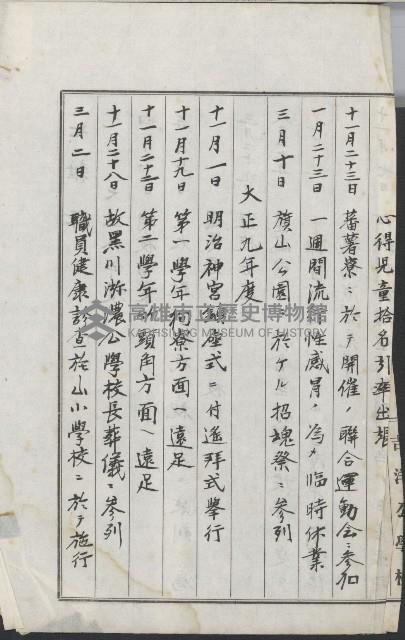 心得児童拾名引率出張
十一月二十三日 蕃薯寮ニ於テ開催ノ聯合運動会ニ参加
一月二十三日 一週間流行性感冒ノ為メ臨時休業
三月十日 旗山公園ニ於ケル招魂祭ニ参列
大正九年度
十一月一日 明治神宮鎮座式ニ付遙拝式挙行
十一月十九日 第一学年 寮方面ヘ遠足
十一月二十二日 第二学年 頭角方面ヘ遠足
十一月二十八日 故黒川 濃公学校長葬儀ニ参列
三月二日 職員健康診査 山小学校ニ於テ施行
公學校
高雄市立歷史博物館
KAOHSIUNG MUSEUM OF HISTORY